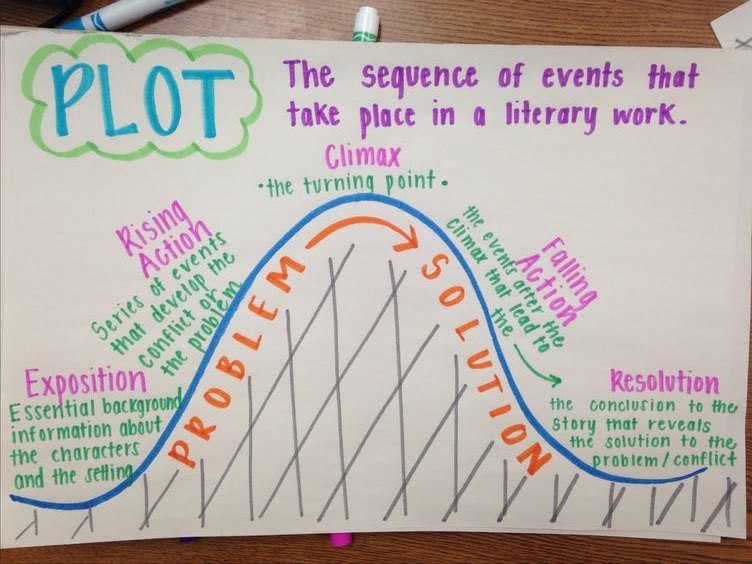 PLOT
The sequence of events that
take place in a literary work.
Climax
•the turning point•
Rising
Action
Series of events
that develop the
conflict or
the problem
Exposition
Essential background
information about
the characters
and the setting
PROBLEM
SOLUTION
Falling
Action
the events after the
climax that lead to
the
Resolution
the conclusion to the
story that reveals
the solution to the
problem/conflict